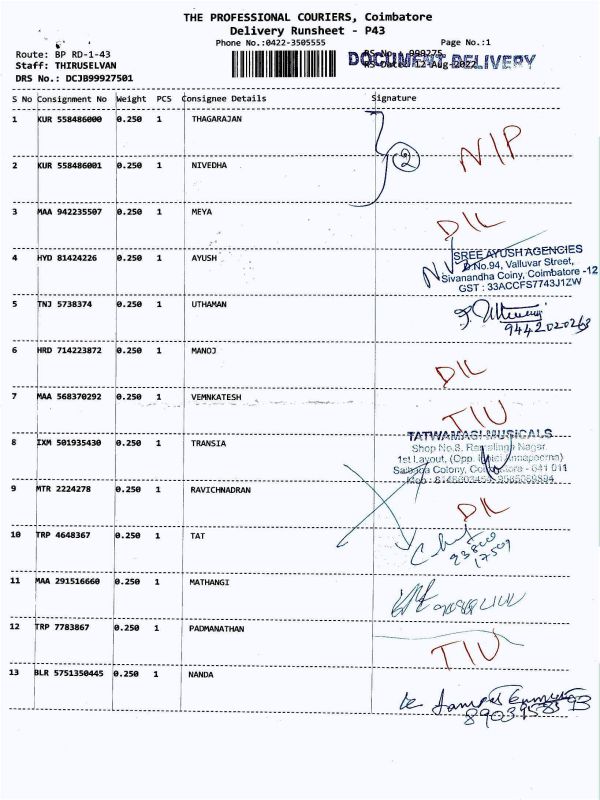 THE PROFESSIONAL COURIERS, Coimbatore
Delivery Runsheet - P43
Phone No.:0422-3505555
Page No.:1
Route: BP RD-1-43
RS No.: 998275
Staff: THIRUSELVAN
RS Date: 12-Aug-2022
DOCUMENT DELIVERY
DRS No.: DCJB99927501
S No Consignment No Weight PCS Consignee Details Signature
1 KUR 558486000 0.250 1 THAGARAJAN
2
N/P
2 KUR 558486001 0.250 1 NIVEDHA
3 MAA 942235507 0.250 1 MEYA D/L
4 HYD 81424226 0.250 1 AYUSH
SREE AYUSH AGENCIES
D.No.94, Valluvar Street,
Sivanandha Colny, Coimbatore -12
GST : 33ACCFS7743J1ZW
5 TNJ 5738374 0.250 1 UTHAMAN
9442020263
6 HRD 714223872 0.250 1 MANOJ D/L
7 MAA 568370292 0.250 1 VEMNKATESH T/U
8 IXM 501935430 0.250 1 TRANSIA
TATWAMASI MUSICALS
Shop No.8, Ramalinga Nagar,
1st Layout, (Opp. Hotel Annapoorna)
Saibaba Colony, Coimbatore - 641 011
9 MTR 2224278 0.250 1 RAVICHNADRAN D/L
10 TRP 4648367 0.250 1 TAT
93800
17509
11 MAA 291516660 0.250 1 MATHANGI
12 TRP 7783867 0.250 1 PADMANATHAN T/U
13 BLR 5751350445 0.250 1 NANDA